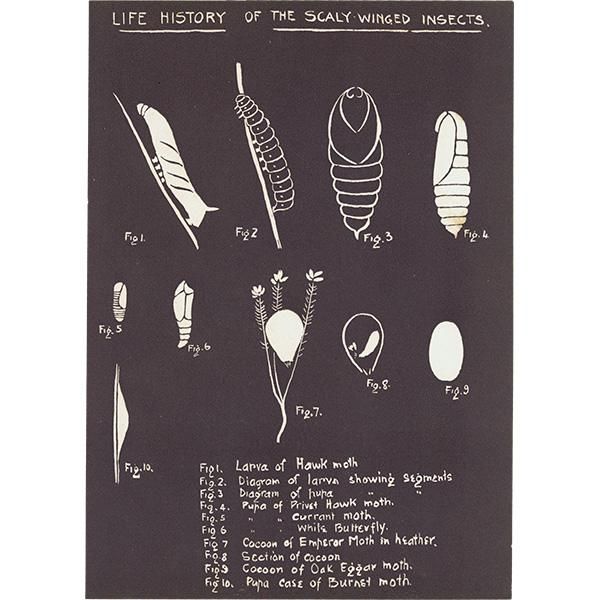 LIFE HISTORY OF THE SCALY-WINGED INSECTS.
Fig 1.
Fig 2
Fig. 3
Fig. 4.
Fig. 5
Fig. 6
Fig. 7.
Fig. 8.
Fig. 9
Fig. 10.
Fig 1. Larva of Hawk moth
Fig. 2. Diagram of larva showing segments
Fig. 3 Diagram of pupa " "
Fig. 4. Pupa of Privet Hawk moth.
Fig. 5 " " Currant moth.
Fig 6 " " White Butterfly.
Fig 7 Cocoon of Emperor Moth in heather.
Fig 8 Section of cocoon
Fig 9 Cocoon of Oak Eggar moth.
Fig 10. Pupa case of Burnet moth.